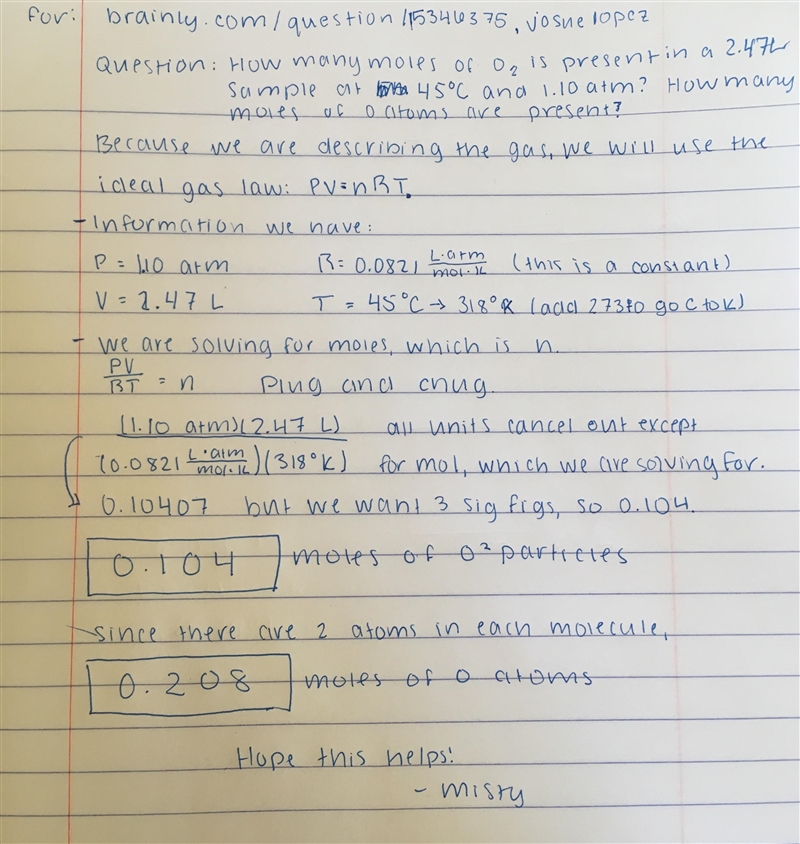 For: brainly.com/question/15346375, josue lopez
Question: How many moles of O₂ is present in a 2.47L
sample at 45°C and 1.10 atm? How many
moles of O atoms are present?
Because we are describing the gas, we will use the
ideal gas law: PV=nRT.
- Information we have:
P = 1.10 atm R = 0.0821 L·atm/mol·K (this is a constant)
V = 2.47 L T = 45°C → 318°K (add 273 to go C to K)
- We are solving for moles, which is n.
PV/RT = n Plug and chug.
(1.10 atm)(2.47 L) all units cancel out except
(0.0821 L·atm/mol·K)(318°K) for mol, which we are solving for.
0.10407 but we want 3 sig figs, so 0.104.
0.104 moles of O² particles
since there are 2 atoms in each molecule,
0.208 moles of O atoms
Hope this helps!
- Misty